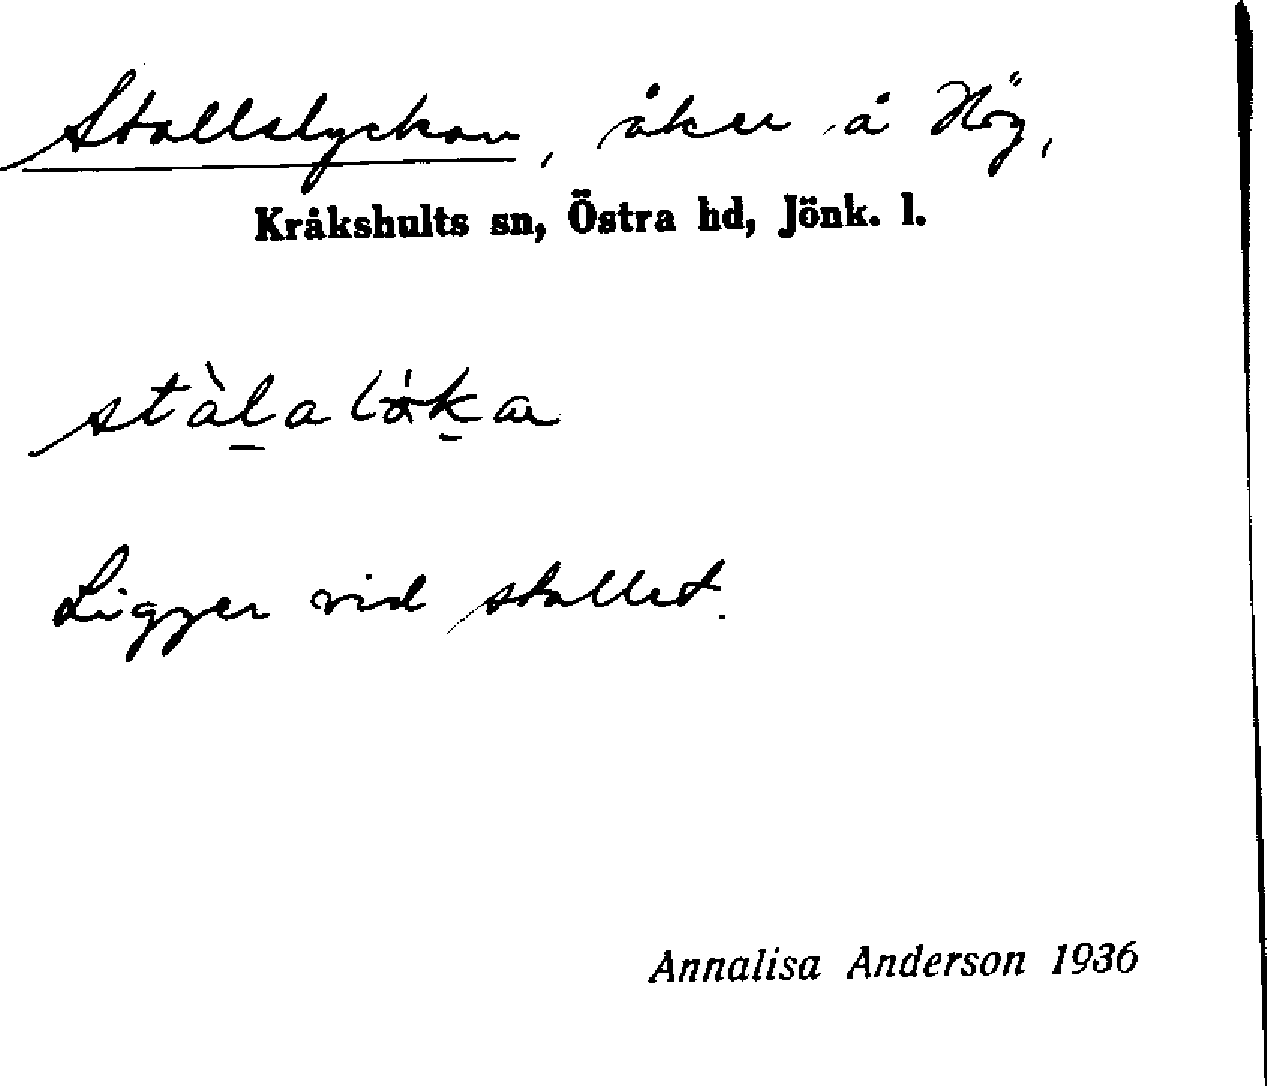 Stallslyckan, åker å Hög,
Kråkshults sn, Östra hd, Jönk. l.
Ligger vid stallet.
Annalisa Anderson 1936